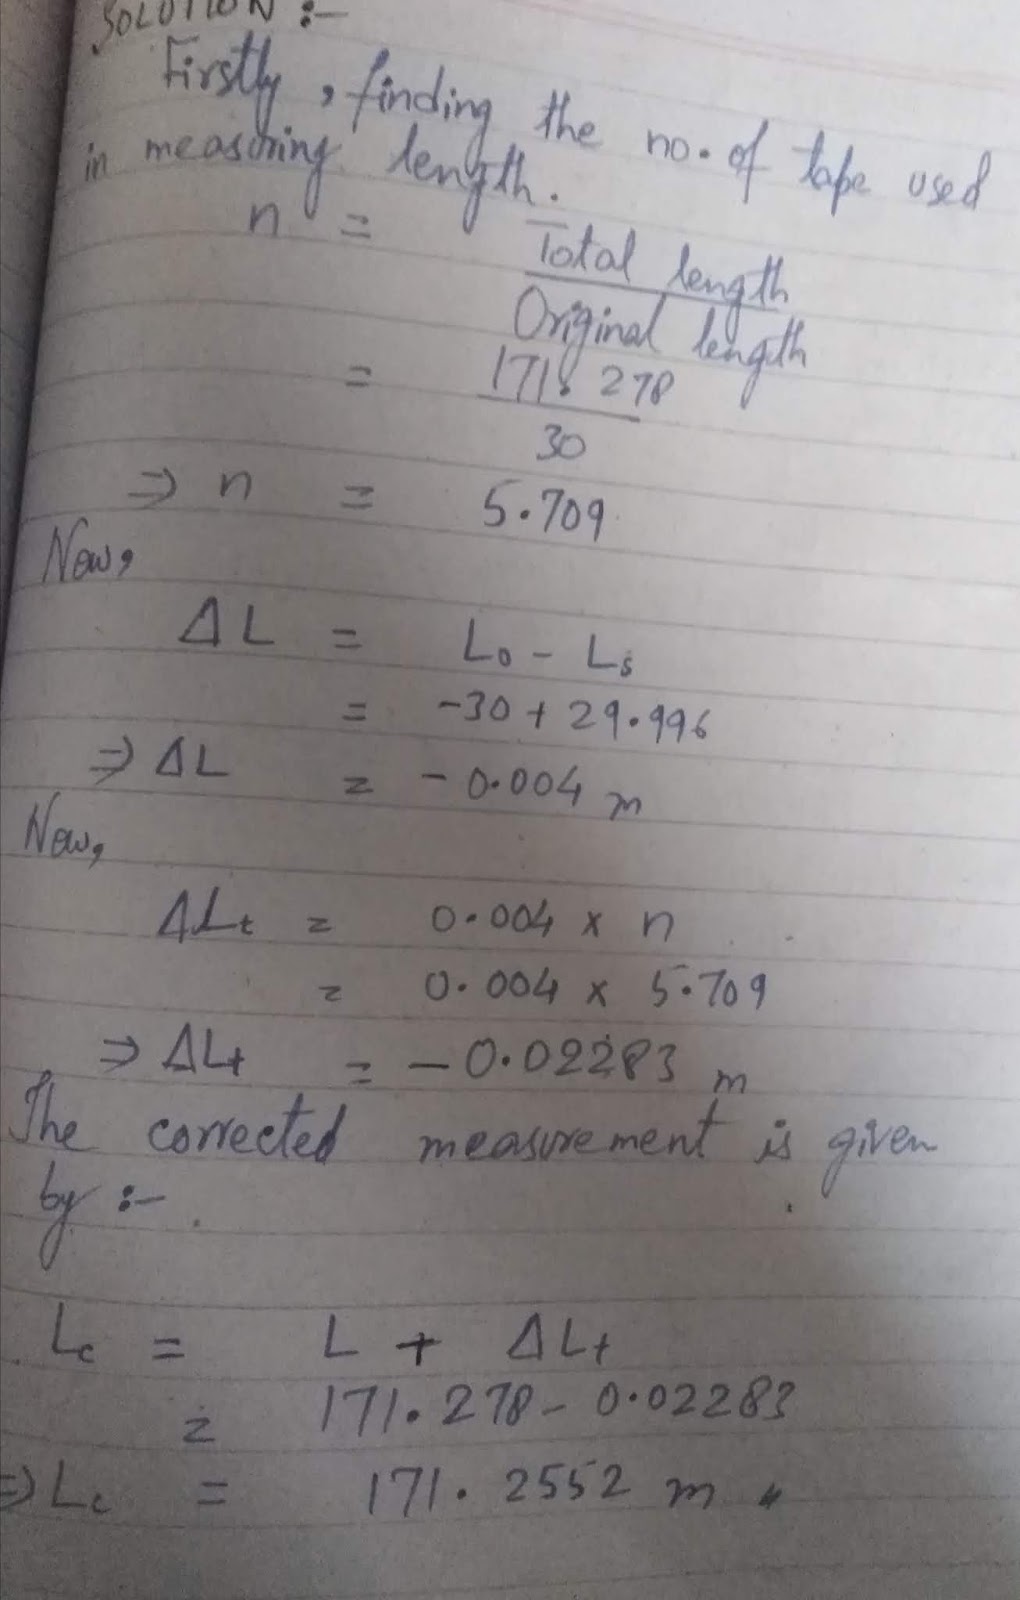 SOLUTION :-
Firstly, finding the no. of tape used
in measuring length.
n = Total length
Original length
= 171.278
30
⇒ n = 5.709
Now,
ΔL = Lo - Ls
= -30 + 29.996
⇒ ΔL = -0.004 m
Now,
ΔLt = 0.004 x n
= 0.004 x 5.709
⇒ ΔLt = -0.02283 m
The corrected measurement is given
by :-
Lc = L + ΔLt
= 171.278 - 0.02283
⇒ Lc = 171.2552 m